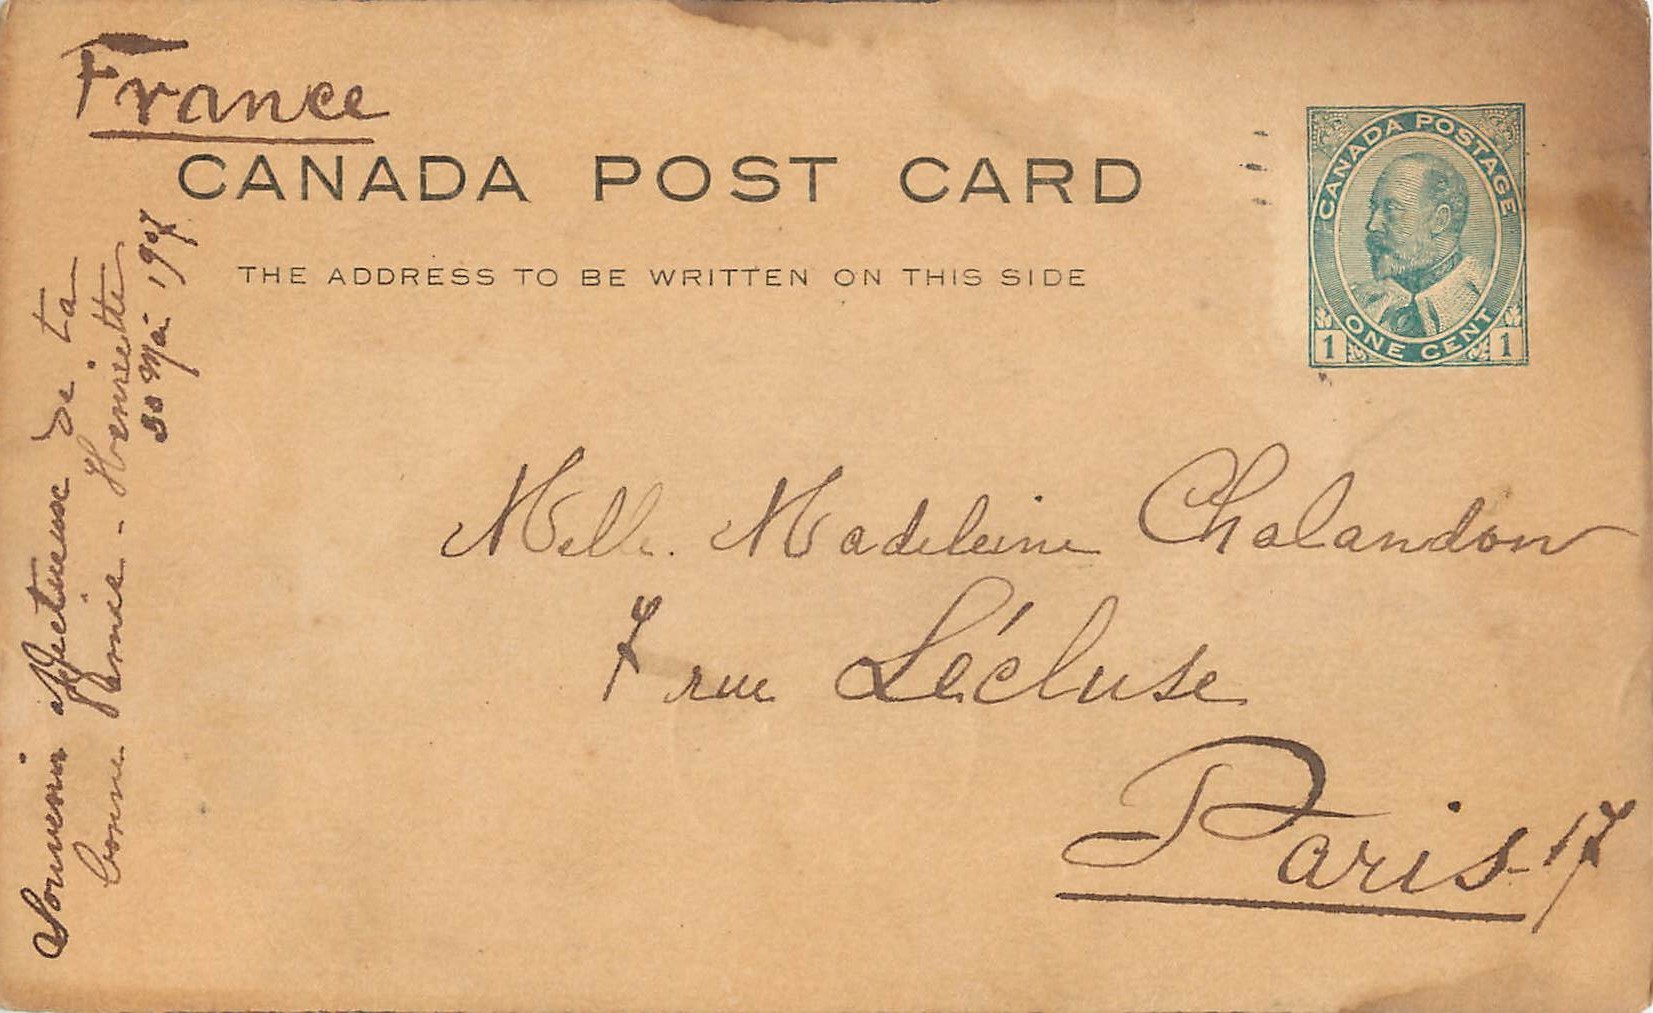 France
CANADA POST CARD
THE ADDRESS TO BE WRITTEN ON THIS SIDE
CANADA POSTAGE
ONE CENT
1 1
Melle. Madeleine Chalandon
7 rue Lécluse
Paris-17
Souvenir affectueuse de ta
bonne amie - Henriette
30 Mai 1907